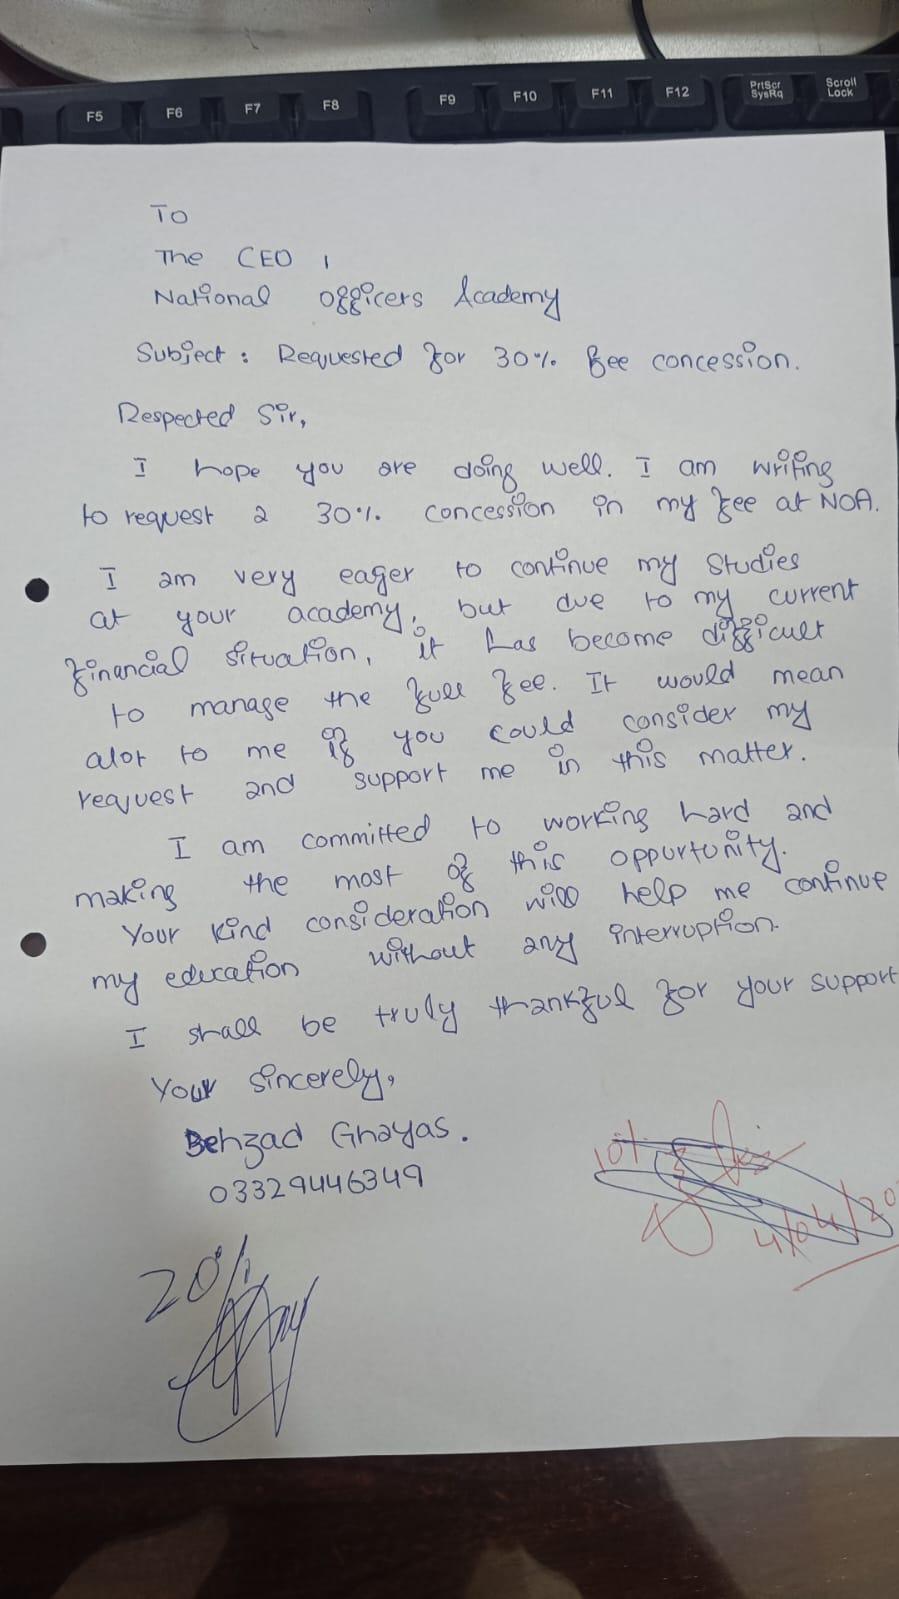 F5 F6 F7 F8 F9 F10 F11 F12 PrtScr SysRq Scroll Lock
To
The CEO,
National Officers Academy
Subject: Requested for 30% fee concession.
Respected Sir,
I hope you are doing well. I am writing
to request a 30% concession in my fee at NOA.
I am very eager to continue my studies
at your academy, but due to my current
financial situation, it has become difficult
to manage the full fee. It would mean
alot to me if you could consider my
request and support me in this matter.
I am committed to working hard and
making the most of this oppurtunity.
Your kind consideration will help me continue
my education without any interruption.
I shall be truly thankful for your support
Your sincerely,
Behzad Ghayas.
03329446349
10%
4/04/20
20%